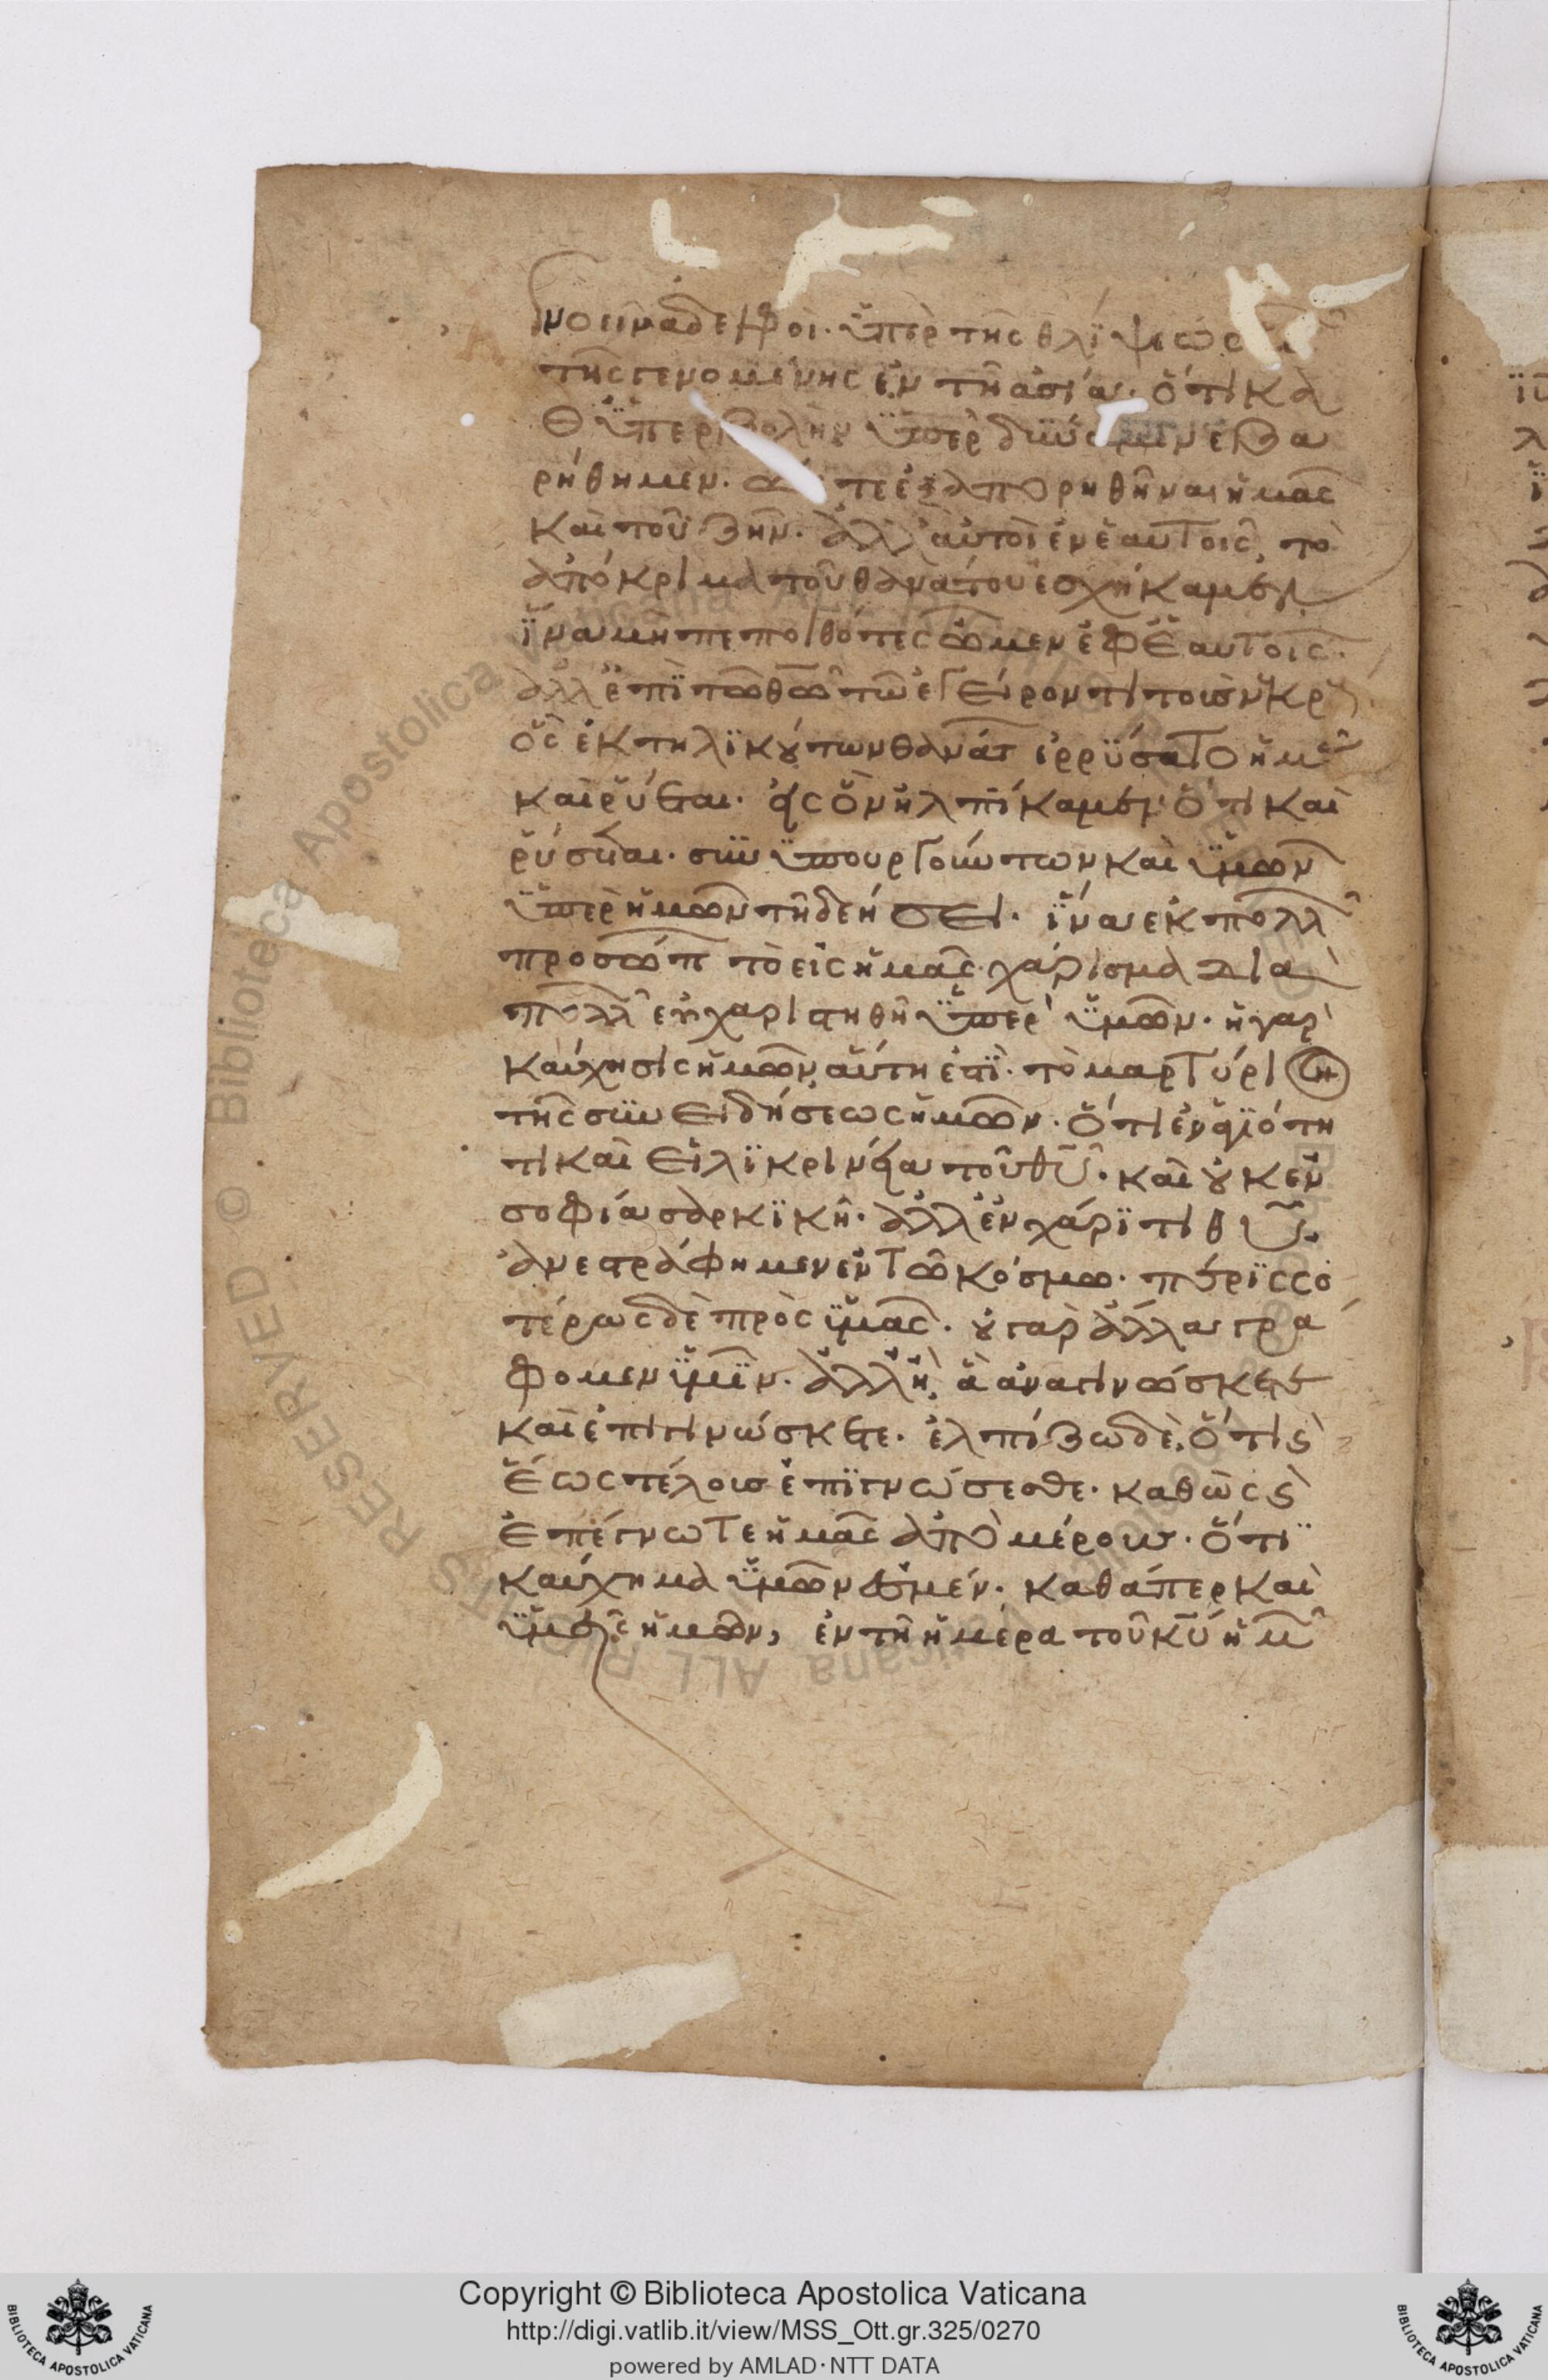 νοεῖν ἀδελφοί· ὑπὲρ τῆς θλίψεως
τῆς γενομένης ἐν τῆ ἀσία· ὅτι κα
θ ὑπερβολὴν ὑπὲρ δύναμιν ἐβα
ρήθημεν· ὥστε ἐξαπορηθῆναι ἡμᾶς
καὶ τοῦ ζῆν· ἀλλ αὐτοὶ ἐν ἑαυτοῖς, τὸ
ἀπόκριμα τοῦ θανάτου ἐσχήκαμεν
ἵνα μὴ πεποιθότες ὦμεν ἐφ ἑαυτοῖς·
ἀλλ ἐπὶ τῶ θῶ τῶ ἐγείροντι τοὺς νεκρ
ὃς ἐκ τηλικούτων θανάτ ἐρρύσατο ἡμᾶ
καὶ ῥύεται· εἰς ὃν ἠλπίκαμεν· ὅτι καὶ
ῥύσεται· συνυπουργούντων καὶ ὑμῶν
ὑπὲρ ἡμῶν τῆ δεήσει· ἵνα ἐκ πολλ
προσώπ τὸ εἰς ἡμᾶς χάρισμα δια
πολλ εὐχαριστηθῆ ὑπὲρ ὑμῶν· ἡ γὰρ
καύχησις ἡμῶν αὕτη ἐστὶ· τὸ μαρτύρι
τῆς συνειδήσεως ἡμῶν· ὅτι ἐν ἁγιότη
τι καὶ εἰλικρινεία τοῦ θῦ· καὶ οὐκ ἐν
σοφία σαρκικῆ· ἀλλ ἐν χάριτι θῦ·
ἀνεστράφημεν ἐν τῶ κόσμω· περισσο
τέρως δὲ πρὸς ὑμᾶς· οὐ γὰρ ἄλλα γρά
φομεν ὑμῖν· ἀλλ ἢ, ἃ ἀναγινώσκετε
καὶ ἐπιγινώσκετε· ἐλπίζω δὲ, ὅτι ϛ
ἕως τέλους ἐπιγνώσεσθε· καθὼς ϛ
ἐπέγνωτε ἡμᾶς ἀπὸ μέρους· ὅτι
καύχημα ὑμῶν ἐσμέν· καθάπερ καὶ
ὑμεῖς ἡμῶν, ἐν τῆ ἡμέρα τοῦ κῦ ἡμ
Copyright © Biblioteca Apostolica Vaticana
http://digi.vatlib.it/view/MSS_Ott.gr.325/0270
powered by AMLAD·NTT DATA